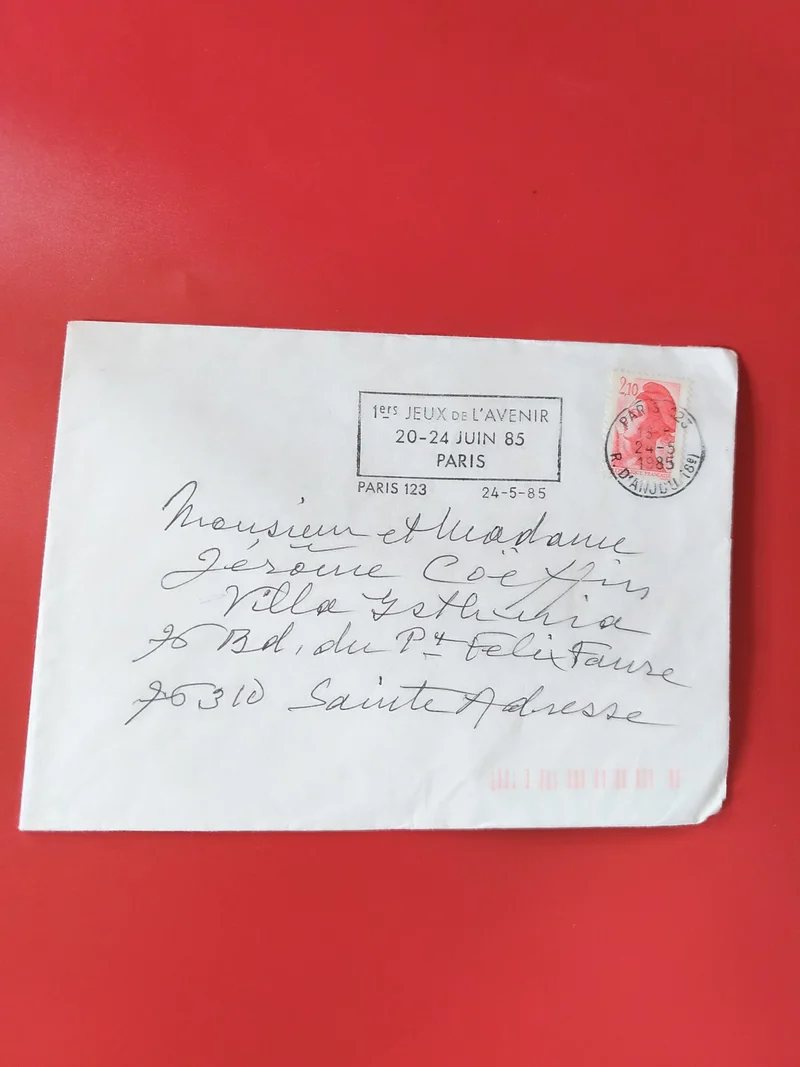 1ers JEUX DE L'AVENIR
20-24 JUIN 85
PARIS
PARIS 123 24-5-85
2,10
PARIS 123
24-5
1985
R. D'ANJOU (8e)
Monsieur et Madame
Jérôme Coëffin
Villa
76 Bd. du Pt Felix Faure
76310 Sainte Adresse